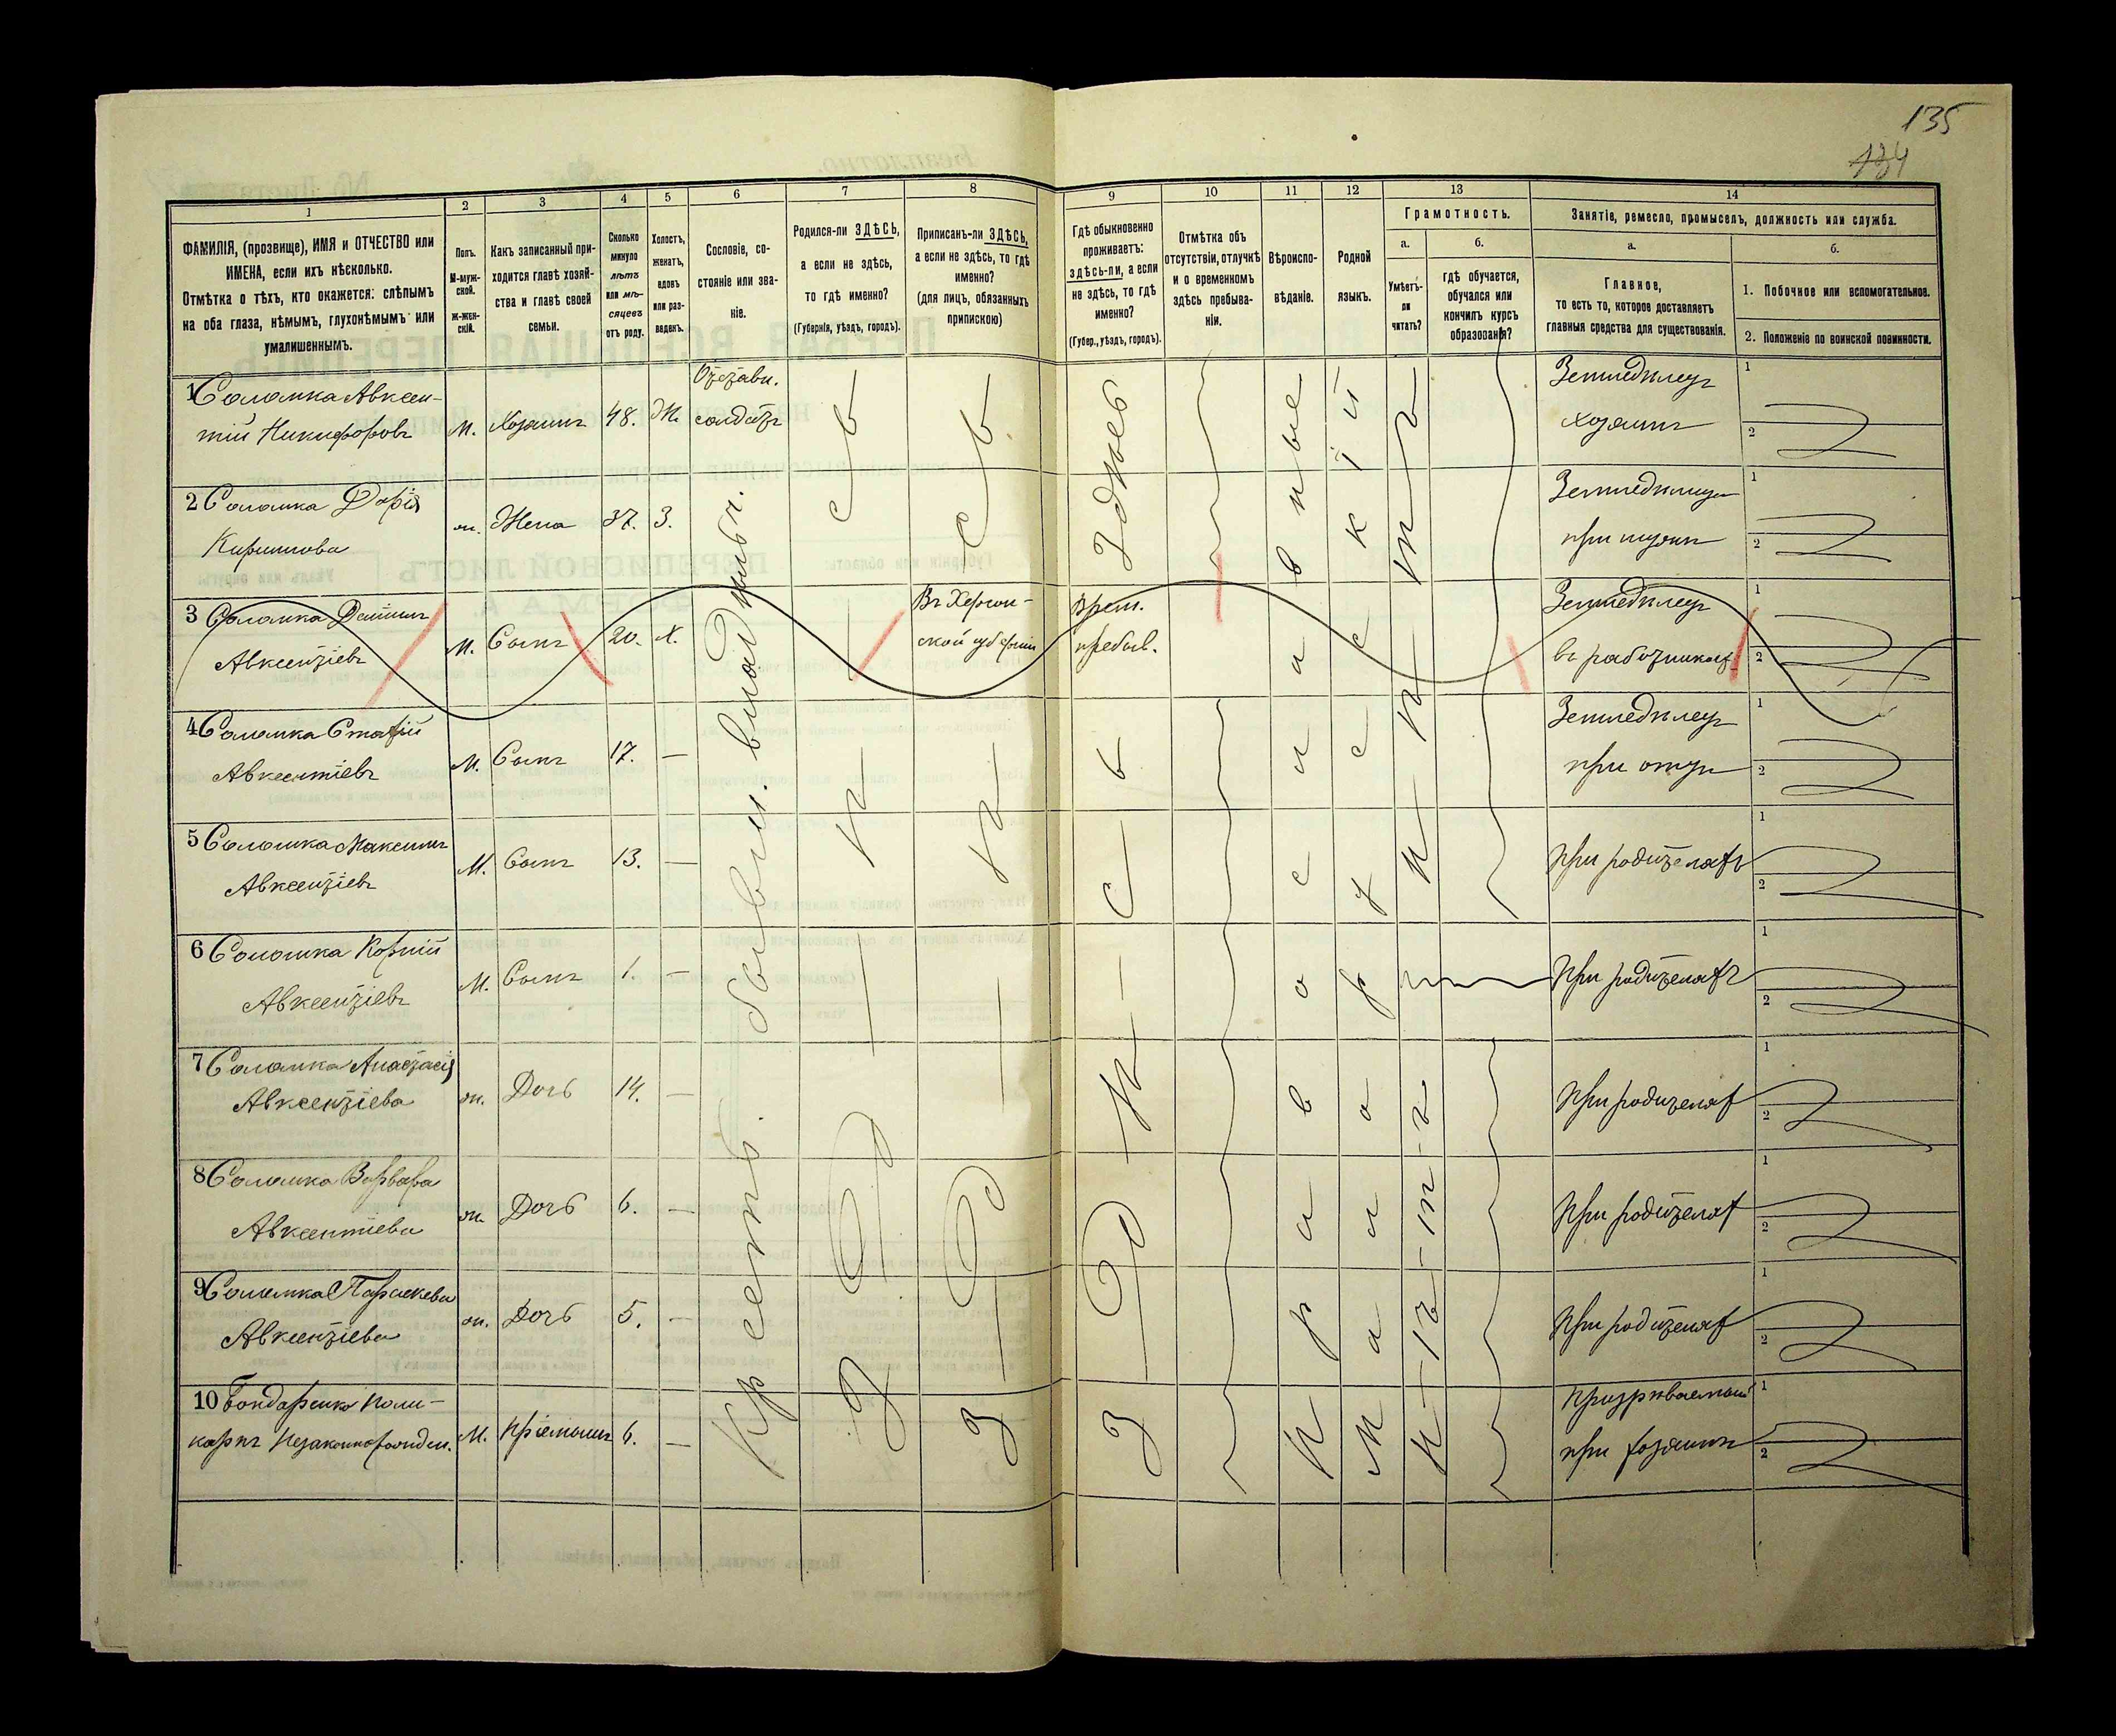 135
134
1
2
3
4
5
6
7
8
9
10
11
12
13
14
ФАМИЛІЯ, (прозвище), ИМЯ и ОТЧЕСТВО или
ИМЕНА, если ихъ нѣсколько.
Отмѣтка о тѣхъ, кто окажется: слѣпымъ
на оба глаза, нѣмымъ, глухонѣмымъ или
умалишеннымъ.
Полъ.
М-муж-
ской.
Ж-жен-
скій.
Какъ записанный при-
ходится главѣ хозяй-
ства и главѣ своей
семьи.
Сколько
минуло
лѣтъ
или мѣ-
сяцевъ
отъ роду.
Холостъ,
женатъ,
вдовъ
или раз-
веденъ.
Сословіе, со-
стояніе или зва-
ніе.
Родился-ли ЗДѢСЬ,
а если не здѣсь,
то гдѣ именно?
(Губернія, уѣздъ, городъ).
Приписанъ-ли ЗДѢСЬ,
а если не здѣсь, то гдѣ
именно?
(для лицъ, обязанныхъ
припискою)
Гдѣ обыкновенно
проживаетъ:
здѣсь-ли, а если
не здѣсь, то гдѣ
именно?
(Губер., уѣздъ, городъ).
Отмѣтка объ
отсутствіи, отлучкѣ
и о временномъ
здѣсь пребыва-
ніи.
Вѣроиспо-
вѣданіе.
Родной
языкъ.
Грамотность.
а.
Умѣетъ-
ли
читать?
б.
гдѣ обучается,
обучался или
кончилъ курсъ
образованія?
Занятіе, ремесло, промыселъ, должность или служба.
а.
Главное,
то есть то, которое доставляетъ
главныя средства для существованія.
б.
1. Побочное или вспомогательное.
2. Положеніе по воинской повинности.
1 Соломка Авксен-
тій Никифоровъ
М. Хозяинъ 48. Ж.
Отставн.
солдатъ
Земледѣлецъ
хозяинъ
2 Соломка Дарія
Кирилова
ж. Жена 37. З.
при мужѣ
3 Соломка Даніилъ
Авксентіевъ
М. Сынъ 20. Х.
Въ Херсон-
ской губерніи
Врем.
пребыв.
Земледѣлецъ
въ работникахъ
4 Соломка
Авксентіевъ
М. Сынъ 17. —
Земледѣлецъ
при отцѣ
5 Соломка Максимъ
Авксентіевъ
М. Сынъ 13. —
При родителяхъ
6 Соломка Корній
Авксентіевъ
М. Сынъ 1. —
При родителяхъ
7 Соломка Анастасія
Авксентіева
ж. Дочь 14. —
При родителях
8 Соломка Варвара
Авксентіева
ж. Дочь 6. —
При родителях
9 Соломка Параскева
Авксентіева
ж. Дочь 5. —
При родителях
10 Бондаренко Поли-
карпъ Незаконнорожден.
М. Пріемышъ 6. —
Призрѣваемый
при хозяинѣ
Крестьян. бывш. владѣльч.
Здѣсь
Православные
Малорусскій
Нѣтъ